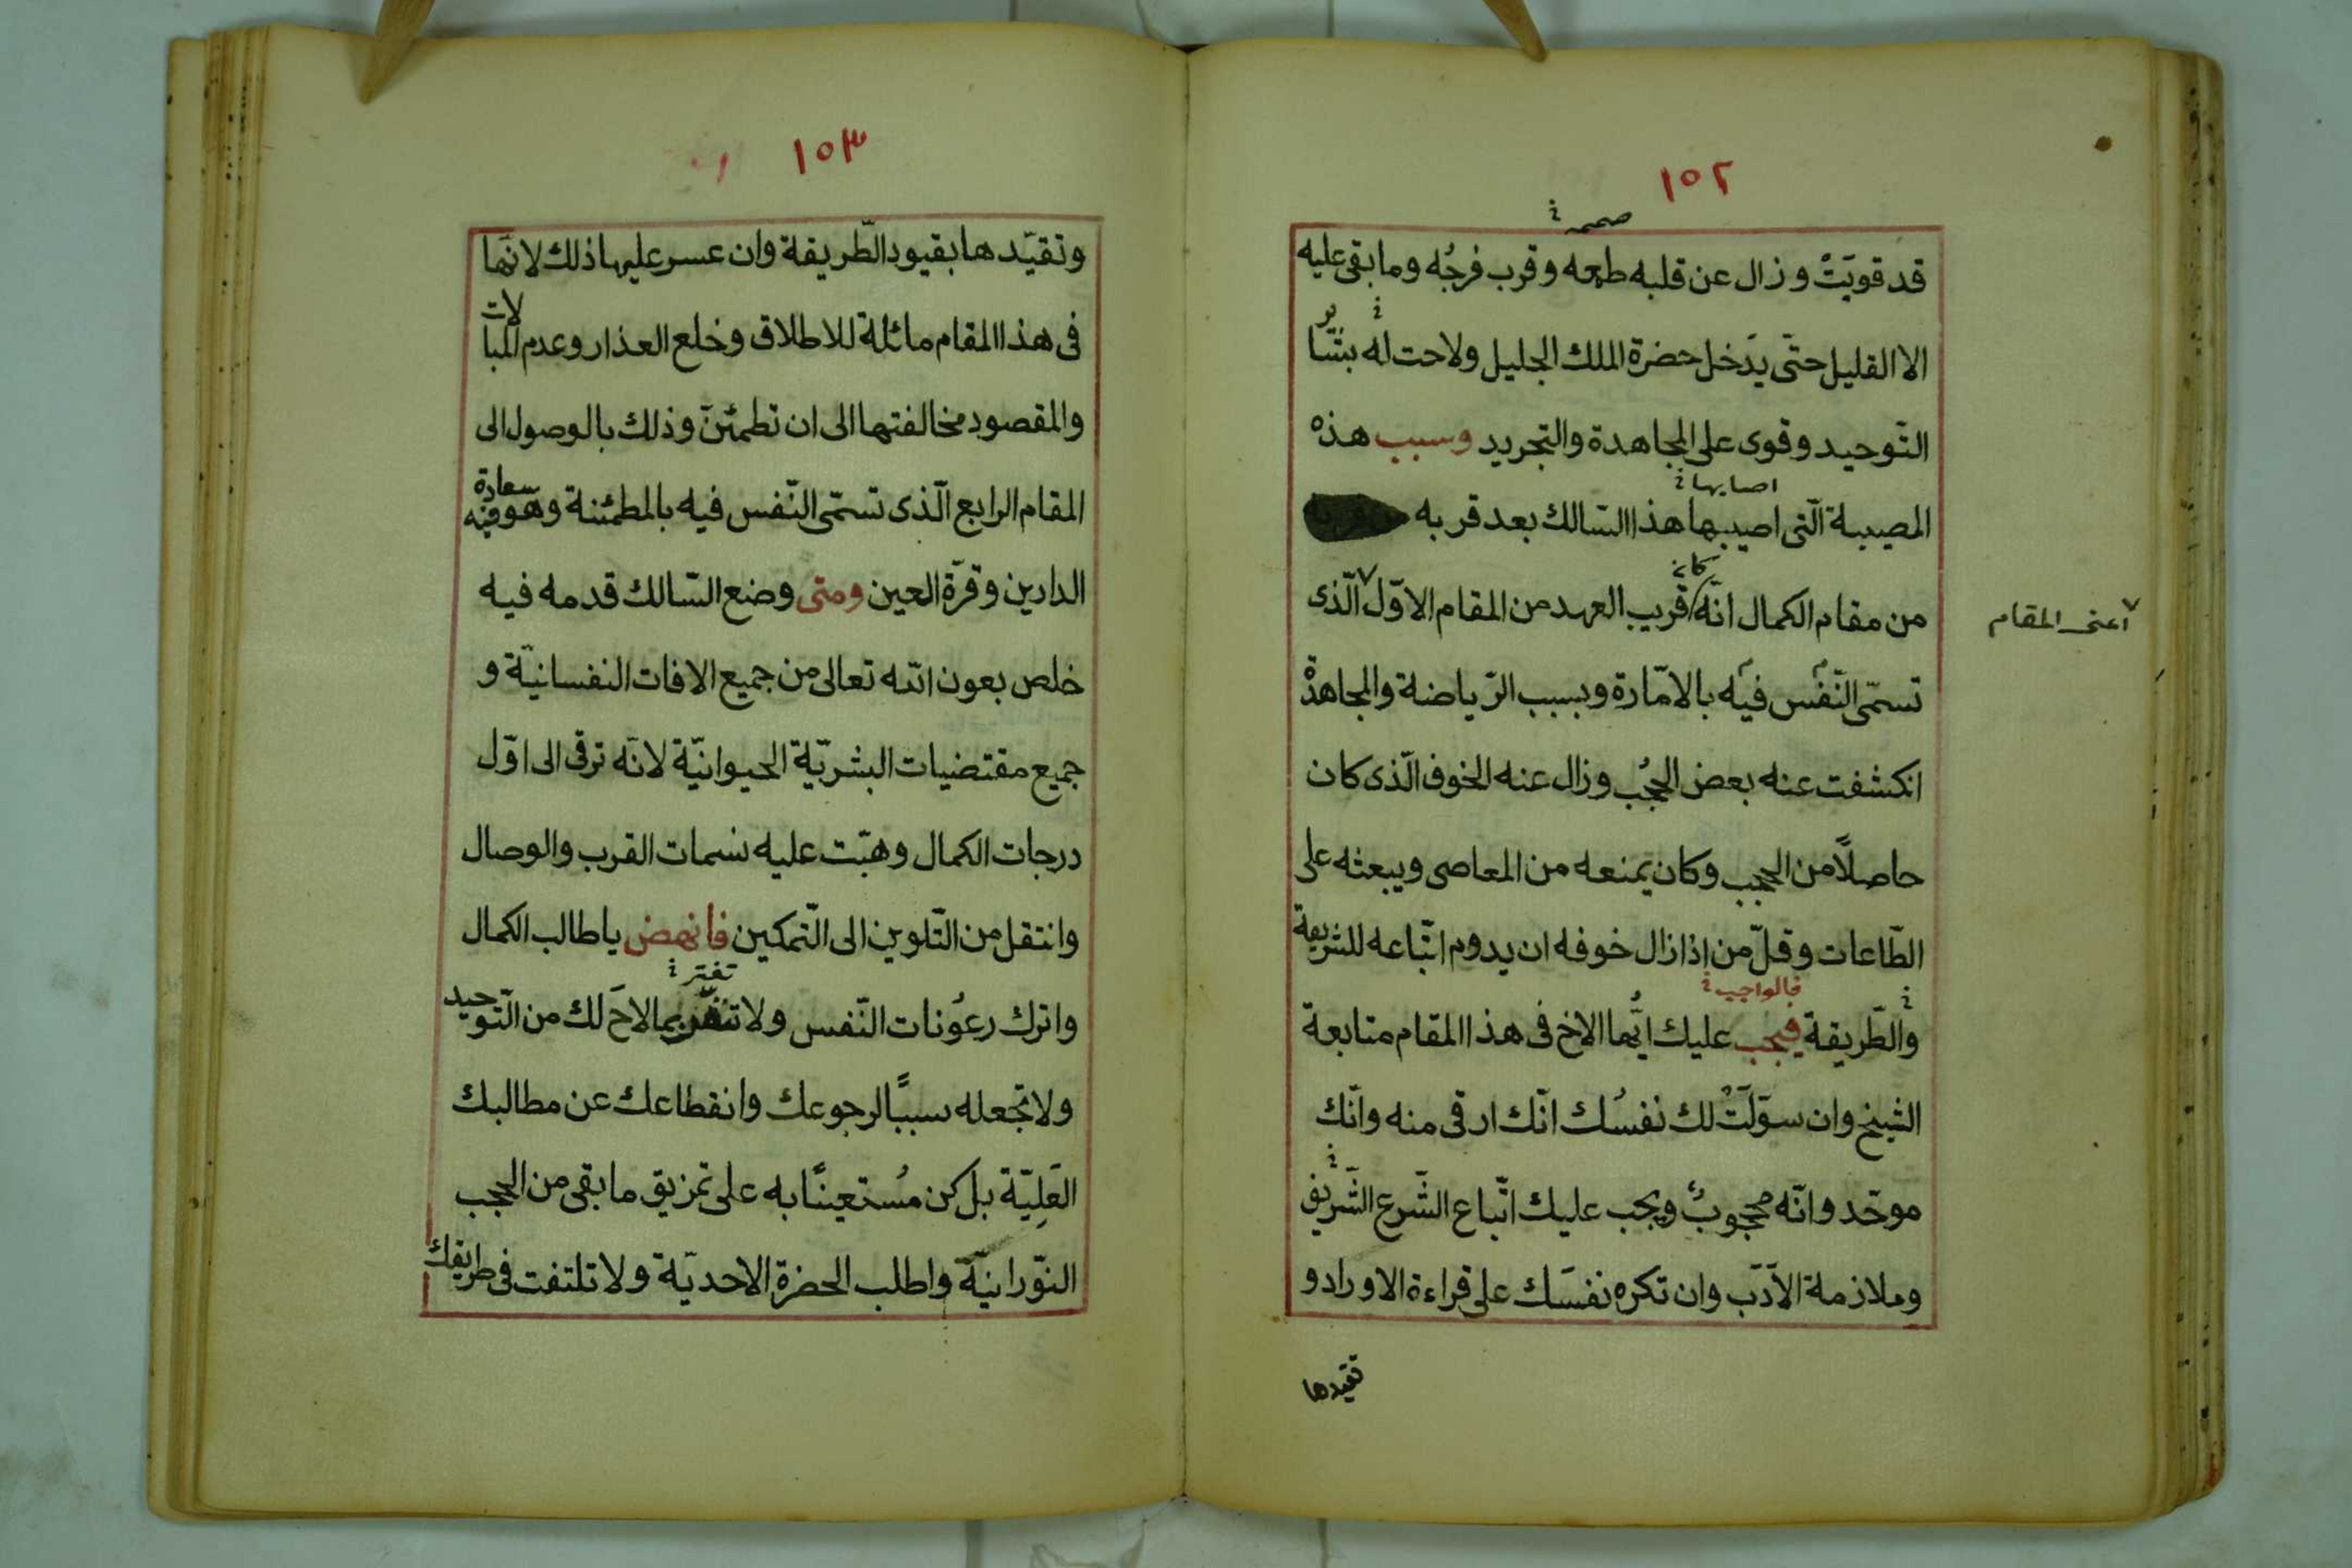 ١٥٢
صحـ
قد قويَتْ وزال عن قلبه طمعه وقرب فرجُه وما بقى عليه
الا القليل حتّى يدَخل حضرة الملك الجليل ولاحت له بشا
ئر
التّوحيد وقوى على المجاهدة والتجريد وسبب هذه
اصابها
المصيبة الّتى اصيبها هذا السّالك بعد قربه
كان
من مقام الكمال انّه قريب العهد من المقام الاوّل الّذى
اعنى المقام
تسمّى النّفس فيه بالامّارة وبسبب الرّياضة والمجاهدة
انكشفت عنه بعض الحجُب وزال عنه الخوف الّذى كان
حاصلًا من الحجب وكان يمنعه من المعاصى ويبعثه على
الطّاعات وقلّ من اذا زال خوفه ان يدوم اتّباعه للشريعة
فالواجب
والطّريقة فيجب عليك ايُّها الاخ فى هذا المقام متابعة
الشيخ وان سوّلَتْ لك نفسُك انّك ارقى منه وانّك
موحّد وانّه محجوبٌ ويجب عليك اتّباع الشّرع الشّريف
وملازمة الاَدَب وان تكره نفسَك على قراءة الاوراد و
تقيدها
١٥٣
وتقيّدها بقيود الطّريقة وان عسر عليها ذلك لانّها
فى هذا المقام مائلة للاطلاق وخلع العذار وعدم المبا
لات
والمقصود مخالفتها الى ان تطمئنّ وذلك بالوصول الى
المقام الرابع الّذى تسمّى النّفس فيه بالمطمئنة وهو فيه سعادة
الدارين وقرّة العين ومتى وضع السّالك قدمه فيه
خلص بعون الله تعالى من جميع الافات النفسانيّة و
جميع مقتضيات البشريّة الحيوانيّة لانّه ترقى الى اوّل
درجات الكمال وهبّت عليه نسمات القرب والوصال
وانتقل من التّلوين الى التّمكين فانهض يا طالب الكمال
تغتر
واترك رعُونات النّفس ولا تغتر بما لاحَ لك من التّوحيد
ولا تجعله سببًا لرجوعك وانقطاعك عن مطالبك
العَلِيّة بل كن مُستعينًا به على تمزيق ما بقى من الحجب
النوّرانيّة واطلب الحضرة الاحديّة ولا تلتفت فى طريقك